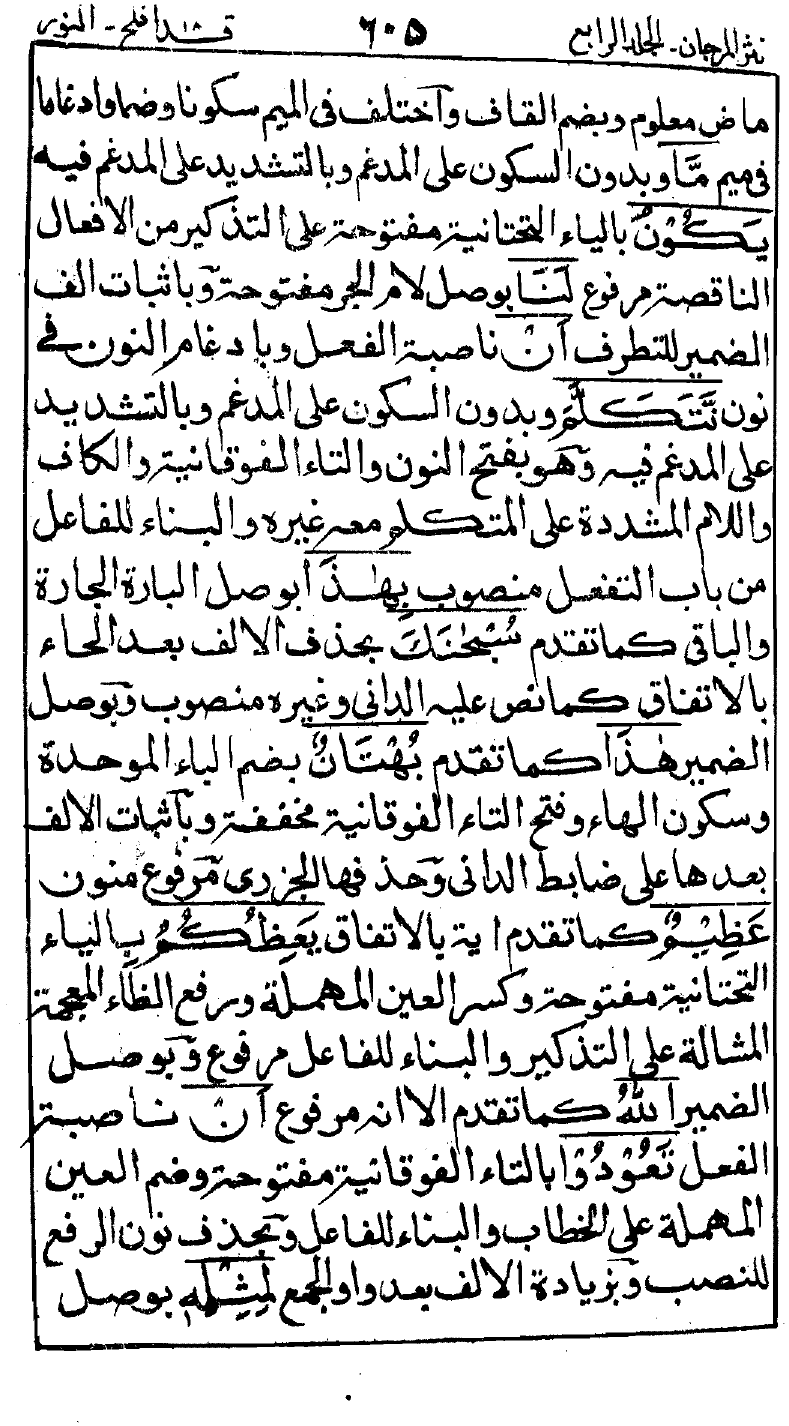 نثر المرجان ـ المجلد الرابع ٦٠٥ قد افلح ١٨ ـ النور
ماض معلوم وبضم القاف وآختلف فى الميم سكونا وضما وادغاما
فى ميم مَّا وبدون السكون على المدغم وبالتشديد على المدغم فيه
يَكُوْنُ بالياء التحتانية مفتوحة على التذكير من الافعال
الناقصة مرفوع لَنَا بوصل لام الجر مفتوحة وَباثبات الف
الضمير للتطرف اَنْ ناصبة الفعل وبادغام النون فى
نون نَّتَكَلَّمَ وبدون السكون على المدغم وبالتشديد
على المدغم فيه وَهو بفتح النون والتاء الفوقانية والكاف
واللام المشددة على المتكلم معه غيره والبناء للفاعل
من باب التفعل منصوب بِهٰذَا بوصل الباءة الجارة
والباقى كما تقدم سُبْحٰنَكَ بحذف الالف بعد الحاء
بالاتفاق كما نص عليه الدانى وغيره منصوب وَبوصل
الضمير هٰذَا كما تقدم بُهْتَانٌ بضم الباء الموحدة
وسكون الهاء وفتح التاء الفوقانية مخففة وبآثبات الالف
بعدها على ضابط الدانى وَحذفها الجزرى مَرفوع منون
عَظِيْمٌ كما تقدم اية بالاتفاق يَعِظُكُمُ بالياء
التحتانية مفتوحة وكسر العين المهملة ورفع الظاء المعجمة
المشالة على التذكير والبناء للفاعل مرفوع وَبوصل
الضمير اللهُ كما تقدم الا انه مرفوع اَنْ ناصبة
الفعل تَعُوْدُوْا بالتاء الفوقانية مفتوحة وضم العين
المهملة على الخطاب والبناء للفاعل وَبحذف نون الرفع
للنصب وَبزيادة الالف بعد واو الجمع لِمِثْلِهٖ بوصل